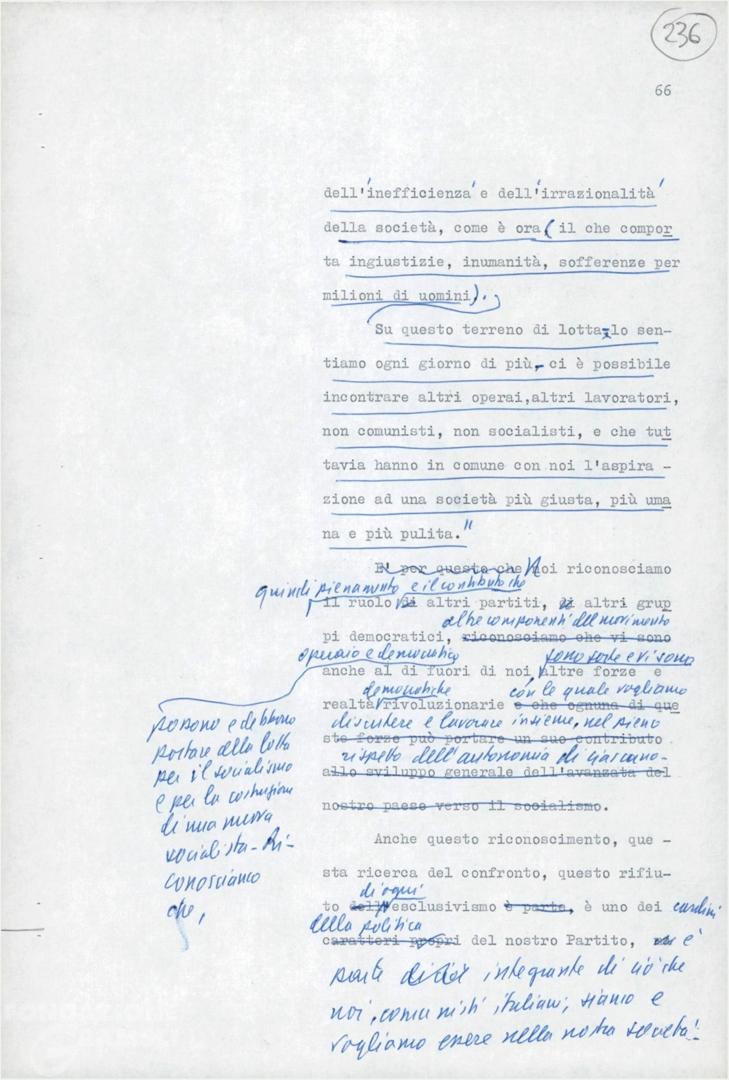 236
66
dell'inefficienza e dell'irrazionalità
della società, come è ora ( il che compor
ta ingiustizie, inumanità, sofferenze per
milioni di uomini).
Su questo terreno di lotta-lo sen-
tiamo ogni giorno di più,- ci è possibile
incontrare altri operai,altri lavoratori,
non comunisti, non socialisti, e che tut
tavia hanno in comune con noi l'aspira -
zione ad una società più giusta, più uma
na e più pulita."
E' per questo che Noi riconosciamo
quindi pienamente e il contributo che
il ruolo di altri partiti, di altri grup
altre componenti del movimento
pi democratici, riconosciamo che vi sono
operaio e democratico sono sorte e vi sono
anche al di fuori di noi altre forze e
democratiche con le quale vogliamo
realtà rivoluzionarie e che ognuna di que
discutere e lavorare insieme, nel pieno
ste forze può portare un suo contributo
rispetto dell'autonomia di ciascuno-
allo sviluppo generale dell'avanzata del
nostro paese verso il socialismo.
possono e debbono
portare alla lotta
per il socialismo
e per la costruzione
di una nuova
socialista- Ri-
conosciamo
che,
Anche questo riconoscimento, que -
sta ricerca del confronto, questo rifiu-
di ogni
to dell'esclusivismo è parte, è uno dei cardini
della politica
caratteri propri del nostro Partito, è
parte integrante di ciò che
noi, comunisti italiani, siamo e
vogliamo essere nella nostra società.